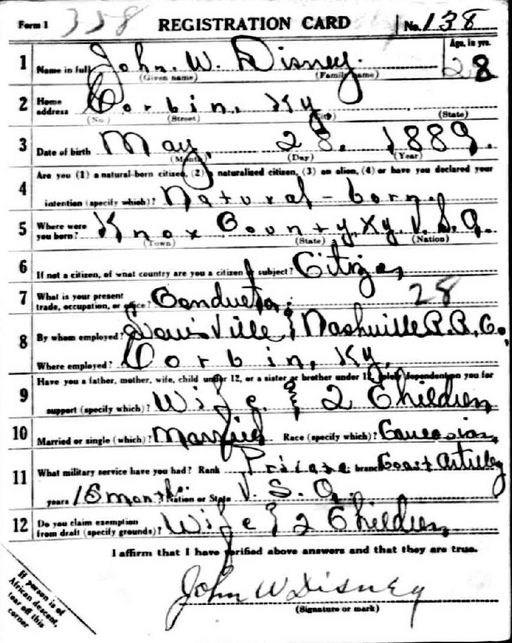 Form 1 358 REGISTRATION CARD No. 138
1 Name in full John. W. Disney. Age, in yrs. 28
(Given name) (Family name)
2 Home address Corbin, Ky
(No.) (Street) (City) (State)
3 Date of birth May, 28. 1889.
(Month) (Day) (Year)
Are you (1) a natural-born citizen, (2) a naturalized citizen, (3) an alien, (4) or have you declared your
4 intention (specify which)? Natural-born.
5 Where were you born? Knox County, Ky. U.S.A.
(Town) (State) (Nation)
6 If not a citizen, of what country are you a citizen or subject? Citizen
7 What is your present trade, occupation, or office? Conductor. 28
8 By whom employed? Louisville & Nashville R.R. Co.
Where employed? Corbin, Ky.
9 Have you a father, mother, wife, child under 12, or a sister or brother under 12, solely dependent on you for
support (specify which)? Wife. & 2 Children
10 Married or single (which)? Married Race (specify which)? Caucasian
11 What military service have you had? Rank Private branch Coast Artillery
years 18 months. Nation or State U.S.A.
12 Do you claim exemption from draft (specify grounds)? Wife & 2 Children
I affirm that I have verified above answers and that they are true.
John W Disney
(Signature or mark)
If person is of
African descent,
tear off this
corner